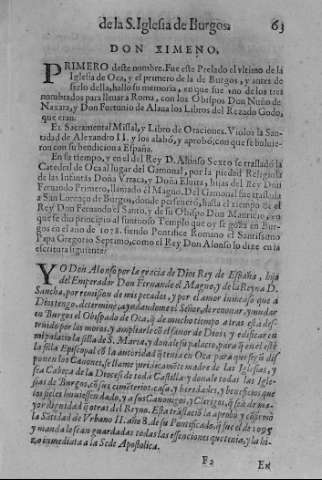 de la S. Iglesia de Burgos. 63
DON XIMENO,
PRIMERO deste nombre. Fue este Prelado el vltimo de la
Iglesia de Oca, y el primero de la de Burgos, y antes de
serlo della, hallo su memoria, en que fue vno de los tres
nombrados para lleuar a Roma, con los Obispos Don Nuño de
Naxara, y Don Fortunio de Alaua los Libros del Rezado Godo,
que eran.
El Sacramental Missal, y Libro de Oraciones. Violos la San-
tidad de Alexandro II. y los alabó, y aprobó, con que se boluie-
ron con su bendicion a España.
En su tiempo, y en el del Rey D. Alonso Sexto se trasladó la
Catedral de Oca al lugar del Gamonal, por la piedad Religiosa
de las Infantas Doña Vrraca, y Doña Eluira, hijas del Rey Don
Fernando Primero, llamado el Magno. Del Gamonal fue trasladada
a San Lorenço de Burgos, donde perseueró, hasta el tiempo de el
Rey Don Fernando el Santo, y de su Obispo Don Mauricio, en
que se dio principio al suntuoso Templo que oy se goza en Bur-
gos en el año de 1078. siendo Pontifice Romano el Santissimo
Papa Gregorio Septimo, como el Rey Don Alonso lo dize en la
escritura siguiente:
YO Don Alonso por la gracia de Dios Rey de España, hijo
del Emperador Don Fernando el Magno, y de la Reyna D.
Sancha, por remision de mis pecados, y por el amor inmenso que a
Dios tengo, determiné, ayudandome el Señor, de renouar, y mudar
en Burgos el Obispado de Oca, q̃ de mucho tiempo a tras está des-
truido por los moros, y ampliarle cõ el fauor de Dios, y edificar en
mi palacio la silla de S. Maria, y donale este palacio, para q̃ en el esté
la silla Episcopal cõ la autoridad q̃ tenia en Oca para que segũ dis-
ponen los Canones, se llame juridicamẽte madre de las Iglesias, y
sea Cabeça de la Diocesis de toda Castilla, y donale todas las Igle-
sias de Burgos, cõ sus cimiterios, casas, y heredades, y beneficios que
los fieles huuiessen dado, y a sus Canonigos, y Clerigos, q̃ sea de ma-
yor dignidad q̃ otras del Reyno. Esta traslaciõ la aprobó, y cõfirmó
la Sãtidad de Vrbano II. año 8. de su Põtificado, q̃ fue el de 1095
y manda le sean guardadas todas las essenciones que tenia, y la hi-
zo inmediata a la Sede Apostolica.
F2 En